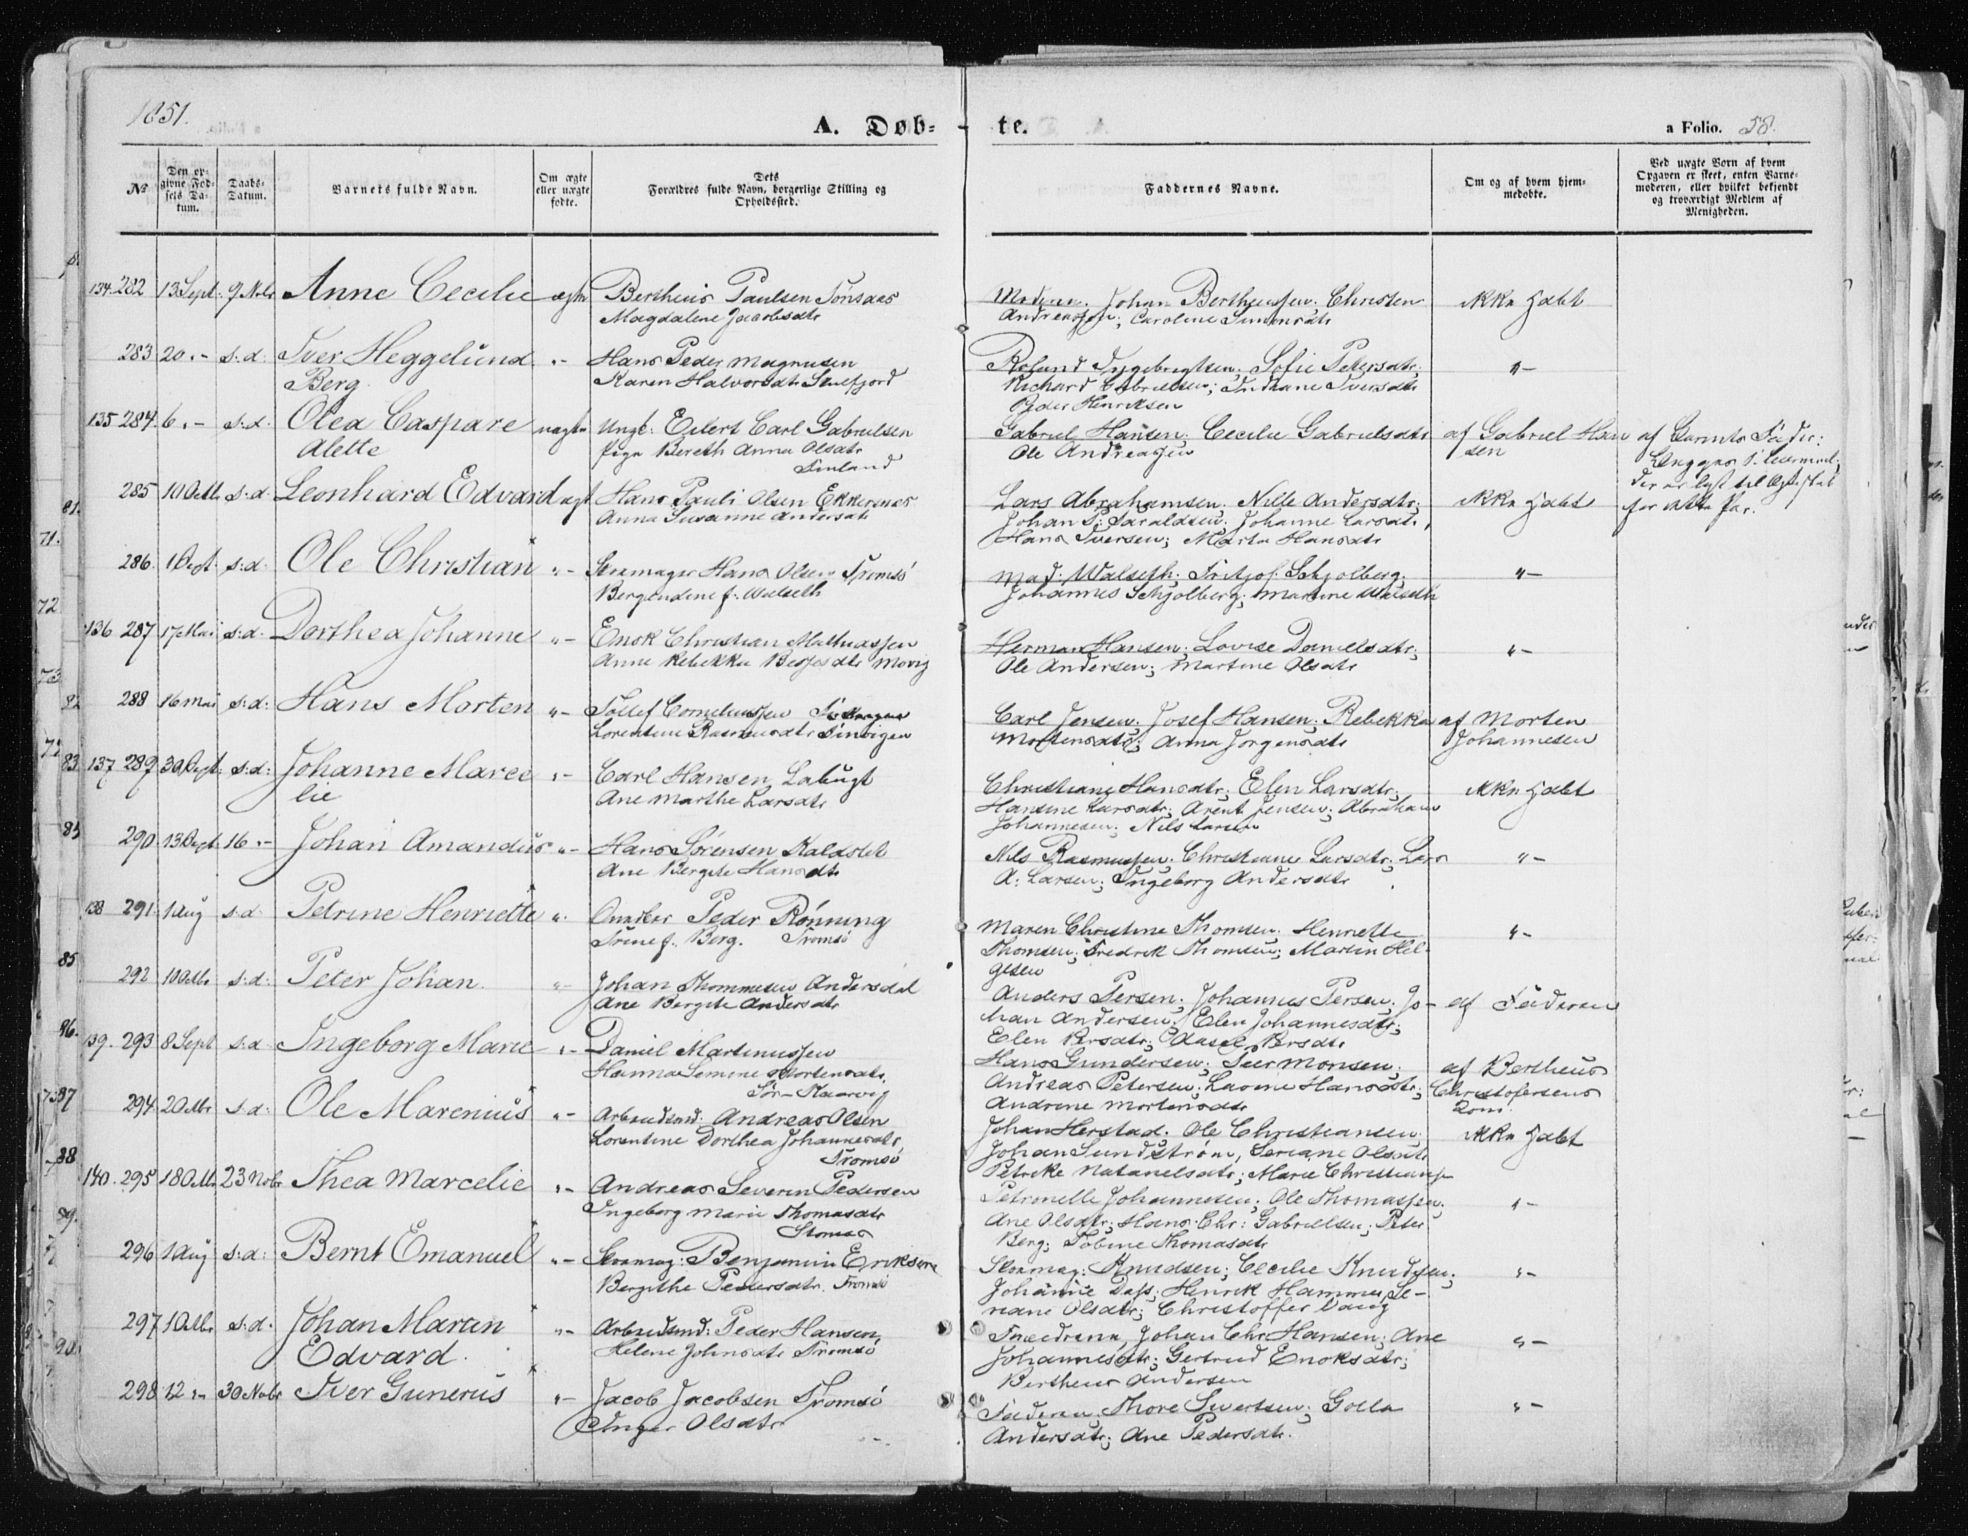 1851.
A. Døb-
te.
a Folio. 58.
No
Den op-
givne Fød-
sels Da-
tum.
Daabs-
Datum.
Barnets fulde Navn.
Om ægte
eller uægte
fødte.
Dets
Forældres fulde Navn, borgerlige Stilling og
Opholdssted.
Faddernes Navne.
Om og af hvem hjem-
medøbte.
Ved uægte Børn af hvem
Opgaven er skeet, enten Barne-
moderen, eller hvilket bekjendt
og troværdigt Medlem af
Menigheden.
134. 282 13 Sept. 9 Nobr Anne Cecilie ægte Bertheus Paulsen Tønsaas
Magdalene Jacobsdtr
Moderen. Johan Bertheussen. Christen
Andreassen; Caroline Simonsdtr
ikke døbt
283 20 .- s.d. Iver Heggelund .- Hans Peder Magnusen
Berg. Karen Halvorsdtr
Roland Ingebregtsen; Sofie Petersdtr.
Richard Gabrielsen; Indiane Iversdtr
Peder Henriksen
"-
135 284 6 .- s.d. Olea Caspare uægte Ungk: Eilert Carl Gabrielsen
Alette Pige Bereth Anna Olsdtr
Finland
Gabriel Hansen; Cecilie Gabrielsdtr
Ole Andreassen
af Gabriel Han
sen
af Barnets Fader:
for dette Par.
285 10 s.d. Leonhard Edvard ægt Hans Pauli Olsen Ekkernes
Anna Susanne Andersdtr
Lars Abrahamsen. Nille Andersdtr;
Johan P: Haraldsen; Johanne Larsdtr,
Hans Iversen; Marta Hansdtr
ikke døbt
286 1 Sept. s.d. Ole Christian "- Skomager Hans Olsen Tromsø
Bergendine f. Walseth
Mad: Walseth; Fritjof Schjolberg;
Johannes Schjolberg; Martine Walseth
"-
136 287 17 Mai s.d. Dorthea Johanne "- Enok Christian Mathiassen
Anne Rebekka
Herman Hansen; Lovise Danielsdtr;
Ole Andersen; Martine Olsdtr
"-
288 16 Mai s.d: Hans Morten "- Tollef Corneliussen
Lorentine Rasmusdtr
Carl Jensen; Josef Hansen; Rebekka
Mortensdtr; Anna Jørgensdtr
af Morten
Johannesen
137 289 30 Sept. s.d: Johanne Marce "- Carl Hansen Labugt
lie Ane Marthe Larsdtr
Christiane Hansdtr; Elen Larsdtr;
Hansine Larsdtr; Arent Jensen; Abraham
Johannesen; Nils Larsen
ikke døbt
290 13 Sept 16 .- Johan Amandus "- Hans Sørensen Kaldslet
Ane Bergite Hansdtr
Nils Rasmussen. Christiane Larsdtr; Lars
A: Larsen; Ingeborg Andersdtr
"-
138 291 1 Aug s.d. Petrine Henriette ". Peder Rønning
Trine f. Berg. Tromsø
Maren Christine Thomsen. Henriette
Thomsen; Fredrik Thomsen; Martin Hel-
gesen
"-
292 10 s.d: Peter Johan. "- Johan Thommesen Andersdal
Ane Bergite Andersdtr
Anders Persen; Johannes Persen; Jo-
han Andersen; Elen Johannesdtr;
Elen Persdtr; Aasel Persdtr
af Faderen
139. 293 8 Sept s.d. Ingeborg Marie "- Daniel Martinussen
Hanna Simine Mortensdtr.
Hans Gundersen; Peer Monsen;
Andreas Petersen; Lavine Hansdtr;
Andrine Mortensdtr
af Bertheus
Christofersens
294 20 s.d: Ole Marenius "- Arbeidsmd. Andreas Olsen
Lorentine Dorthea Johannesdtr
Tromsø
Johan Herstad. Ole Christiansen;
Johan Sundstrøm, Seriane Olsdtr
Petrike Natanelsdtr; Marie Christians
ikke døbt
140. 295 18 23 Nobr Thea Marcelie "- Andreas Severin Pedersen
Ingeborg Marie Thomasdtr
Petrinelle Johannesen; Ole Thomassen;
Ane Olsdtr; Hans Chr: Gabrielsen; Peter
Berg; Sobine Thomasdtr
"-
296 1 Aug s.d: Bernt Emanuel "- Skomag: Benjamin Eriksen
Bergithe Pedersdtr. Tromsø
Skomag: Knudsen; Cecilie Knudsen;
Johanne Dass; Henrik Hammer, Se-
riane Olsdtr; Christoffer
"-
297 10 s.d. Johan Martin "- Arbeidsmd: Peder Hansen
Edvard. Helene Johnsdtr Tromsø
Faderen, Johan Chr Hansen; Ane
Johannesdtr; Gertrud Enoksdtr;
Bertheus Andersen
"-
298 12 .- 30 Nobr Iver Gunerius "- Jacob Jacobsen Tromsø
Inger Olsdtr
Faderen; Thore Sivertsen; Golla
Andersdtr; Ane Pedersdtr.
"-